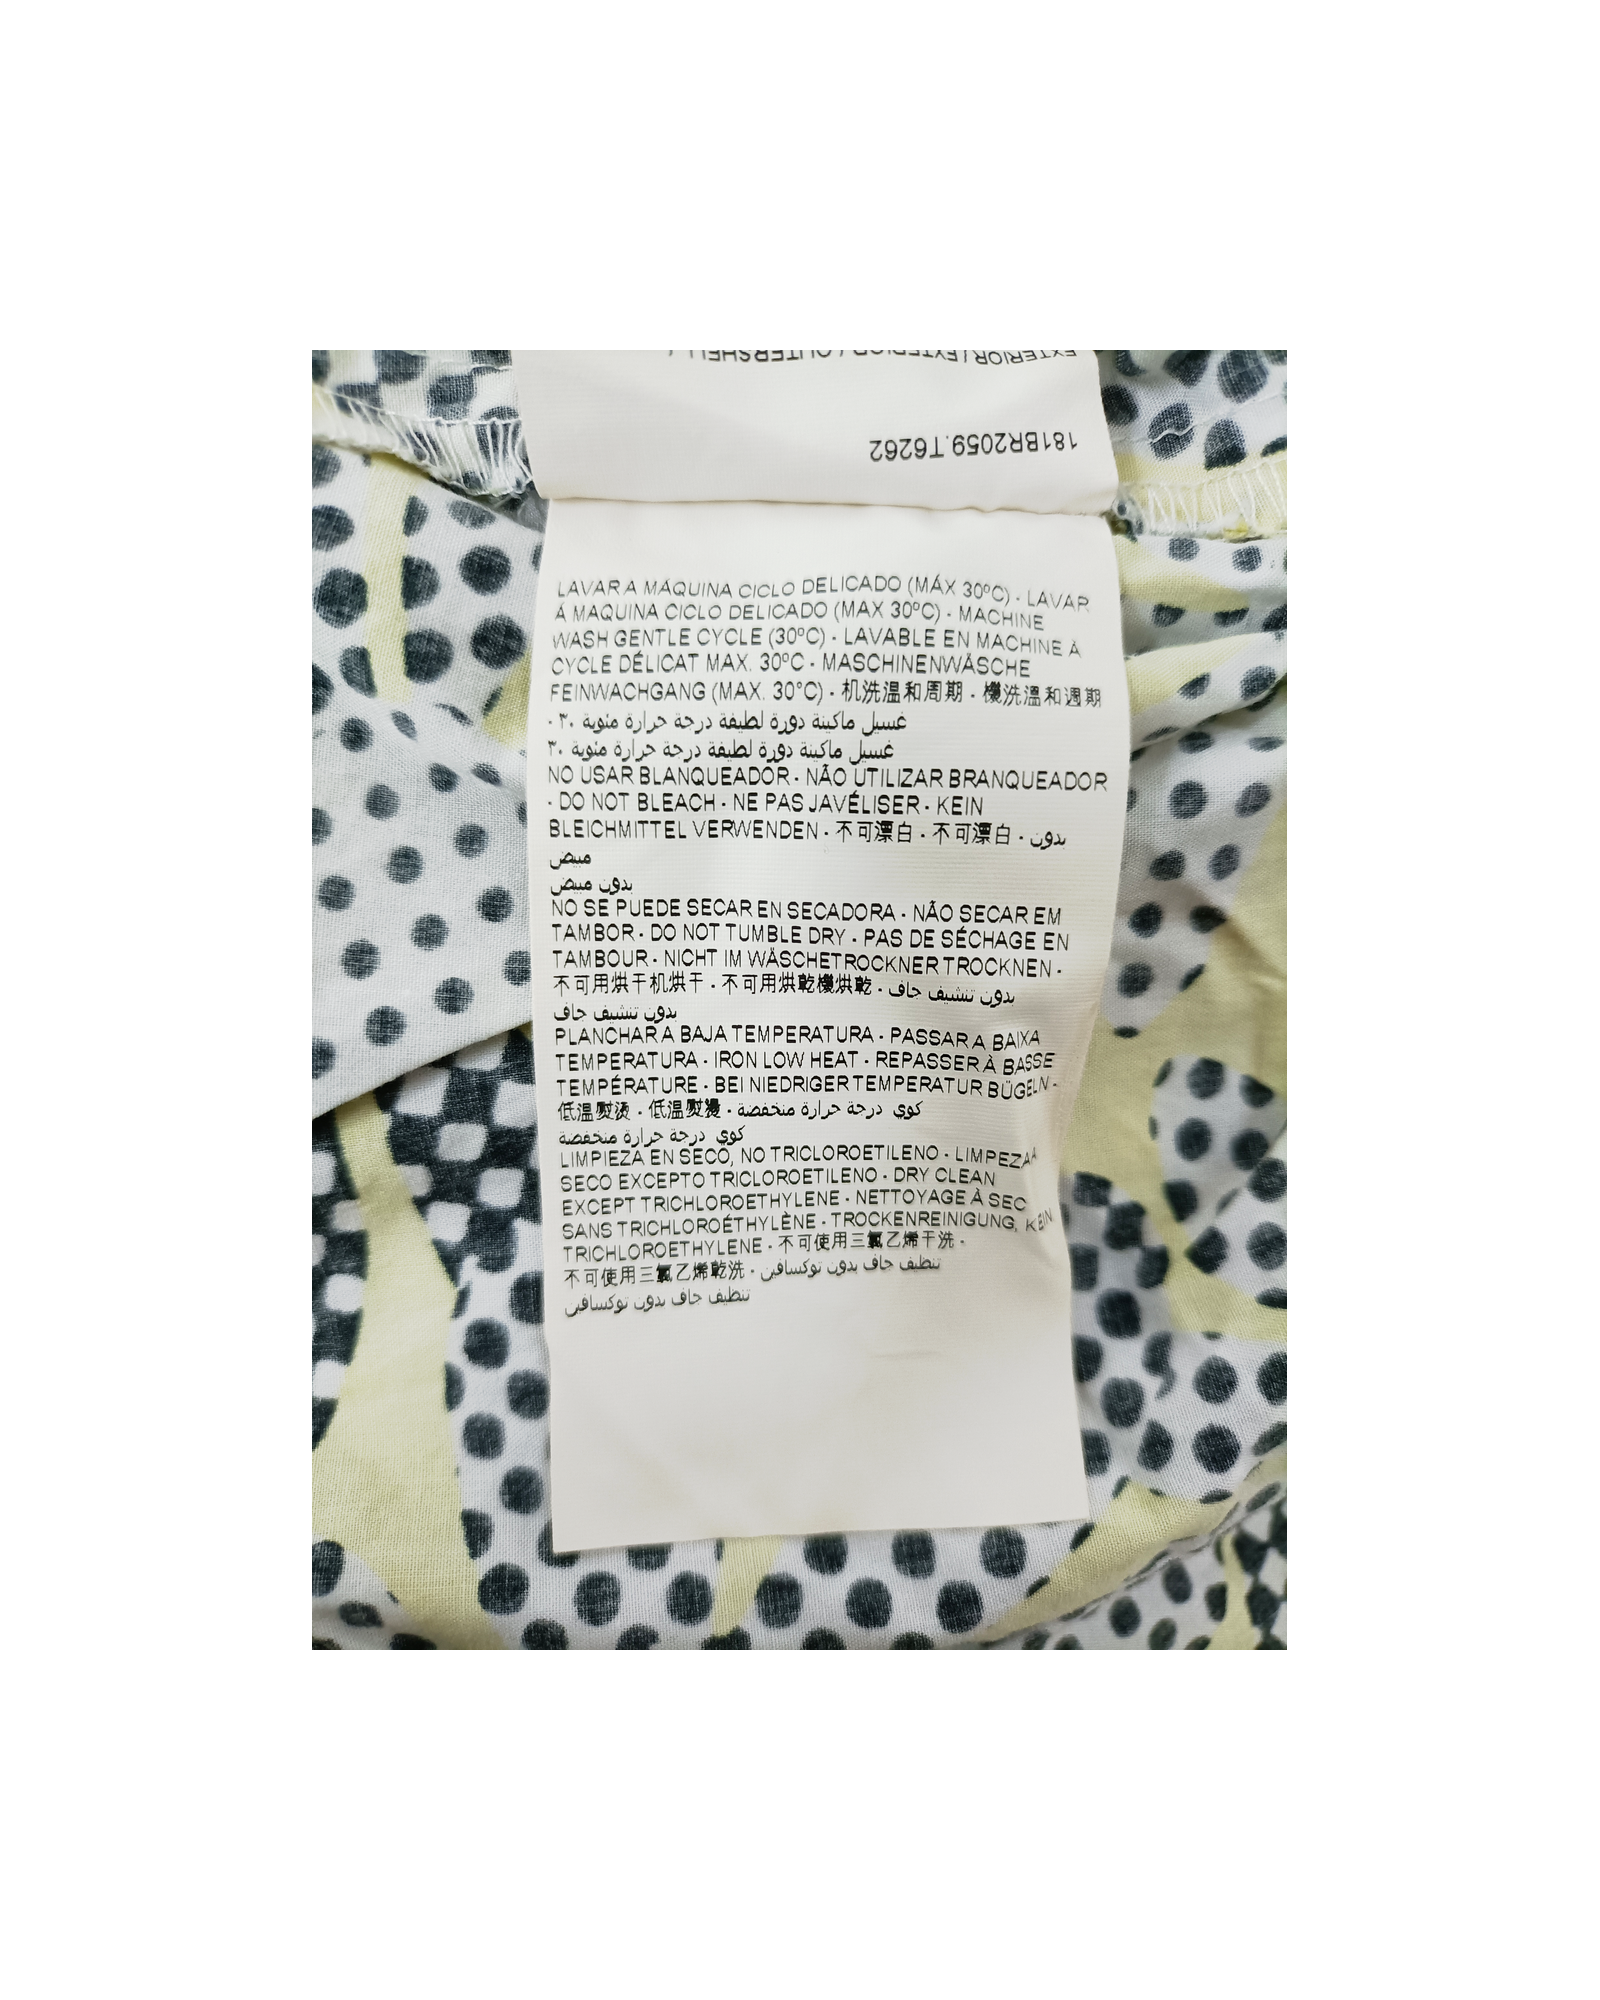 EXTERIOR / EXTERIOR / OUTERSHELL /
181BR2059.T6262
LAVAR A MÁQUINA CICLO DELICADO (MÁX 30ºC) - LAVAR
À MAQUINA CICLO DELICADO (MAX 30ºC) - MACHINE
WASH GENTLE CYCLE (30ºC) - LAVABLE EN MACHINE À
CYCLE DÉLICAT MAX. 30ºC - MASCHINENWÄSCHE
FEINWACHGANG (MAX. 30°C) - 机洗温和周期 - 機洗溫和週期
- غسيل ماكينة دورة لطيفة درجة حرارة مئوية ٣٠
غسيل ماكينة دورة لطيفة درجة حرارة مئوية ٣٠
NO USAR BLANQUEADOR - NÃO UTILIZAR BRANQUEADOR
- DO NOT BLEACH - NE PAS JAVÉLISER - KEIN
BLEICHMITTEL VERWENDEN - 不可漂白 - 不可漂白 - بدون
مبيض
بدون مبيض
NO SE PUEDE SECAR EN SECADORA - NÃO SECAR EM
TAMBOR - DO NOT TUMBLE DRY - PAS DE SÉCHAGE EN
TAMBOUR - NICHT IM WÄSCHETROCKNER TROCKNEN -
不可用烘干机烘干 - 不可用烘乾機烘乾 - بدون تنشيف جاف
بدون تنشيف جاف
PLANCHAR A BAJA TEMPERATURA - PASSAR A BAIXA
TEMPERATURA - IRON LOW HEAT - REPASSER À BASSE
TEMPÉRATURE - BEI NIEDRIGER TEMPERATUR BÜGELN -
低温熨烫 - 低溫熨燙 - كوي درجة حرارة منخفضة
كوي درجة حرارة منخفضة
LIMPIEZA EN SECO, NO TRICLOROETILENO - LIMPEZA A
SECO EXCEPTO TRICLOROETILENO - DRY CLEAN
EXCEPT TRICHLOROETHYLENE - NETTOYAGE À SEC
SANS TRICHLOROÉTHYLÈNE - TROCKENREINIGUNG, KEIN
TRICHLOROETHYLENE - 不可使用三氯乙烯干洗 -
不可使用三氯乙烯乾洗 - تنظيف جاف بدون توكسافين
تنظيف جاف بدون توكسافين